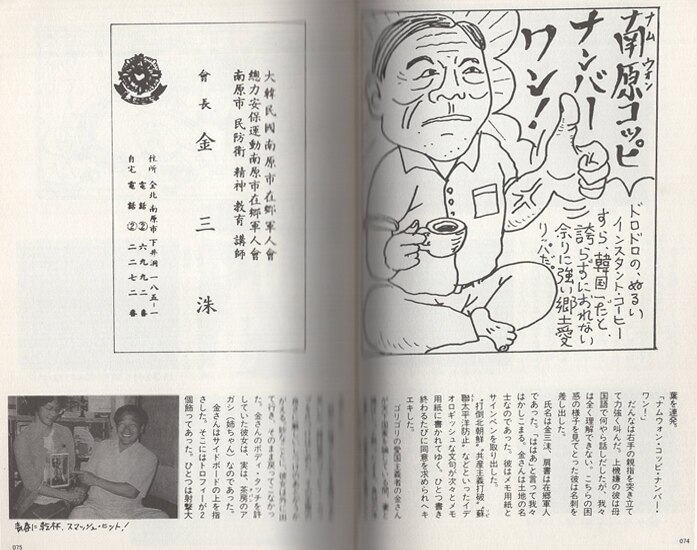 ナムウォン
南原コッピ
ナンバー
ワン!
ドロドロの、ぬるい
インスタント・コーヒー
すら、韓国一だと、
誇らずにおれない
余りに強い郷土愛
リッパだ。
葉を連発。
「ナムウォン・コッピ・ナンバー・
ワン!」
だんなは右手の親指を突き立て
て力強く叫んだ。上機嫌の彼は母
国語で何やら話しだしたが、我々
は全く理解できない。こちらの困
惑の様子を見てとった彼は名刺を
差し出した。
氏名は金三洙、肩書は在郷軍人
であった。「ははあ」と言って我々
はかしこまる。金さんは土地の名
士なのであった。彼はメモ用紙と
サインペンを取り出した。
"打倒北朝鮮""共産主義打破""蘇
聯太平洋防止"などといったイデ
オロギッシュな文句が次々とメモ
用紙に書かれてゆく。ひとつ書き
終わるたびに同意を求められヘキ
エキした。
ゴリゴリの愛国主義者の金さん
074
大韓民國南原市在郷軍人會
總力安保運動南原市在郷軍人會
南原市民防衛精神教育講師
會長 金三洙
住所 全北南原市下井洞一八五-一
電話②六九九二番
自宅電話②二二七二番
て行き、そのまま戻ってこなかっ
た。金さんのボディ・タッチを許
していた彼女は、実は、茶房のア
ガシ(姉ちゃん)なのであった。
金さんはサイドボードの上を指
さした。そこにはトロフィーが2
個飾ってあった。ひとつは射撃大
青春に乾杯、スマッシュ・ヒット!
075